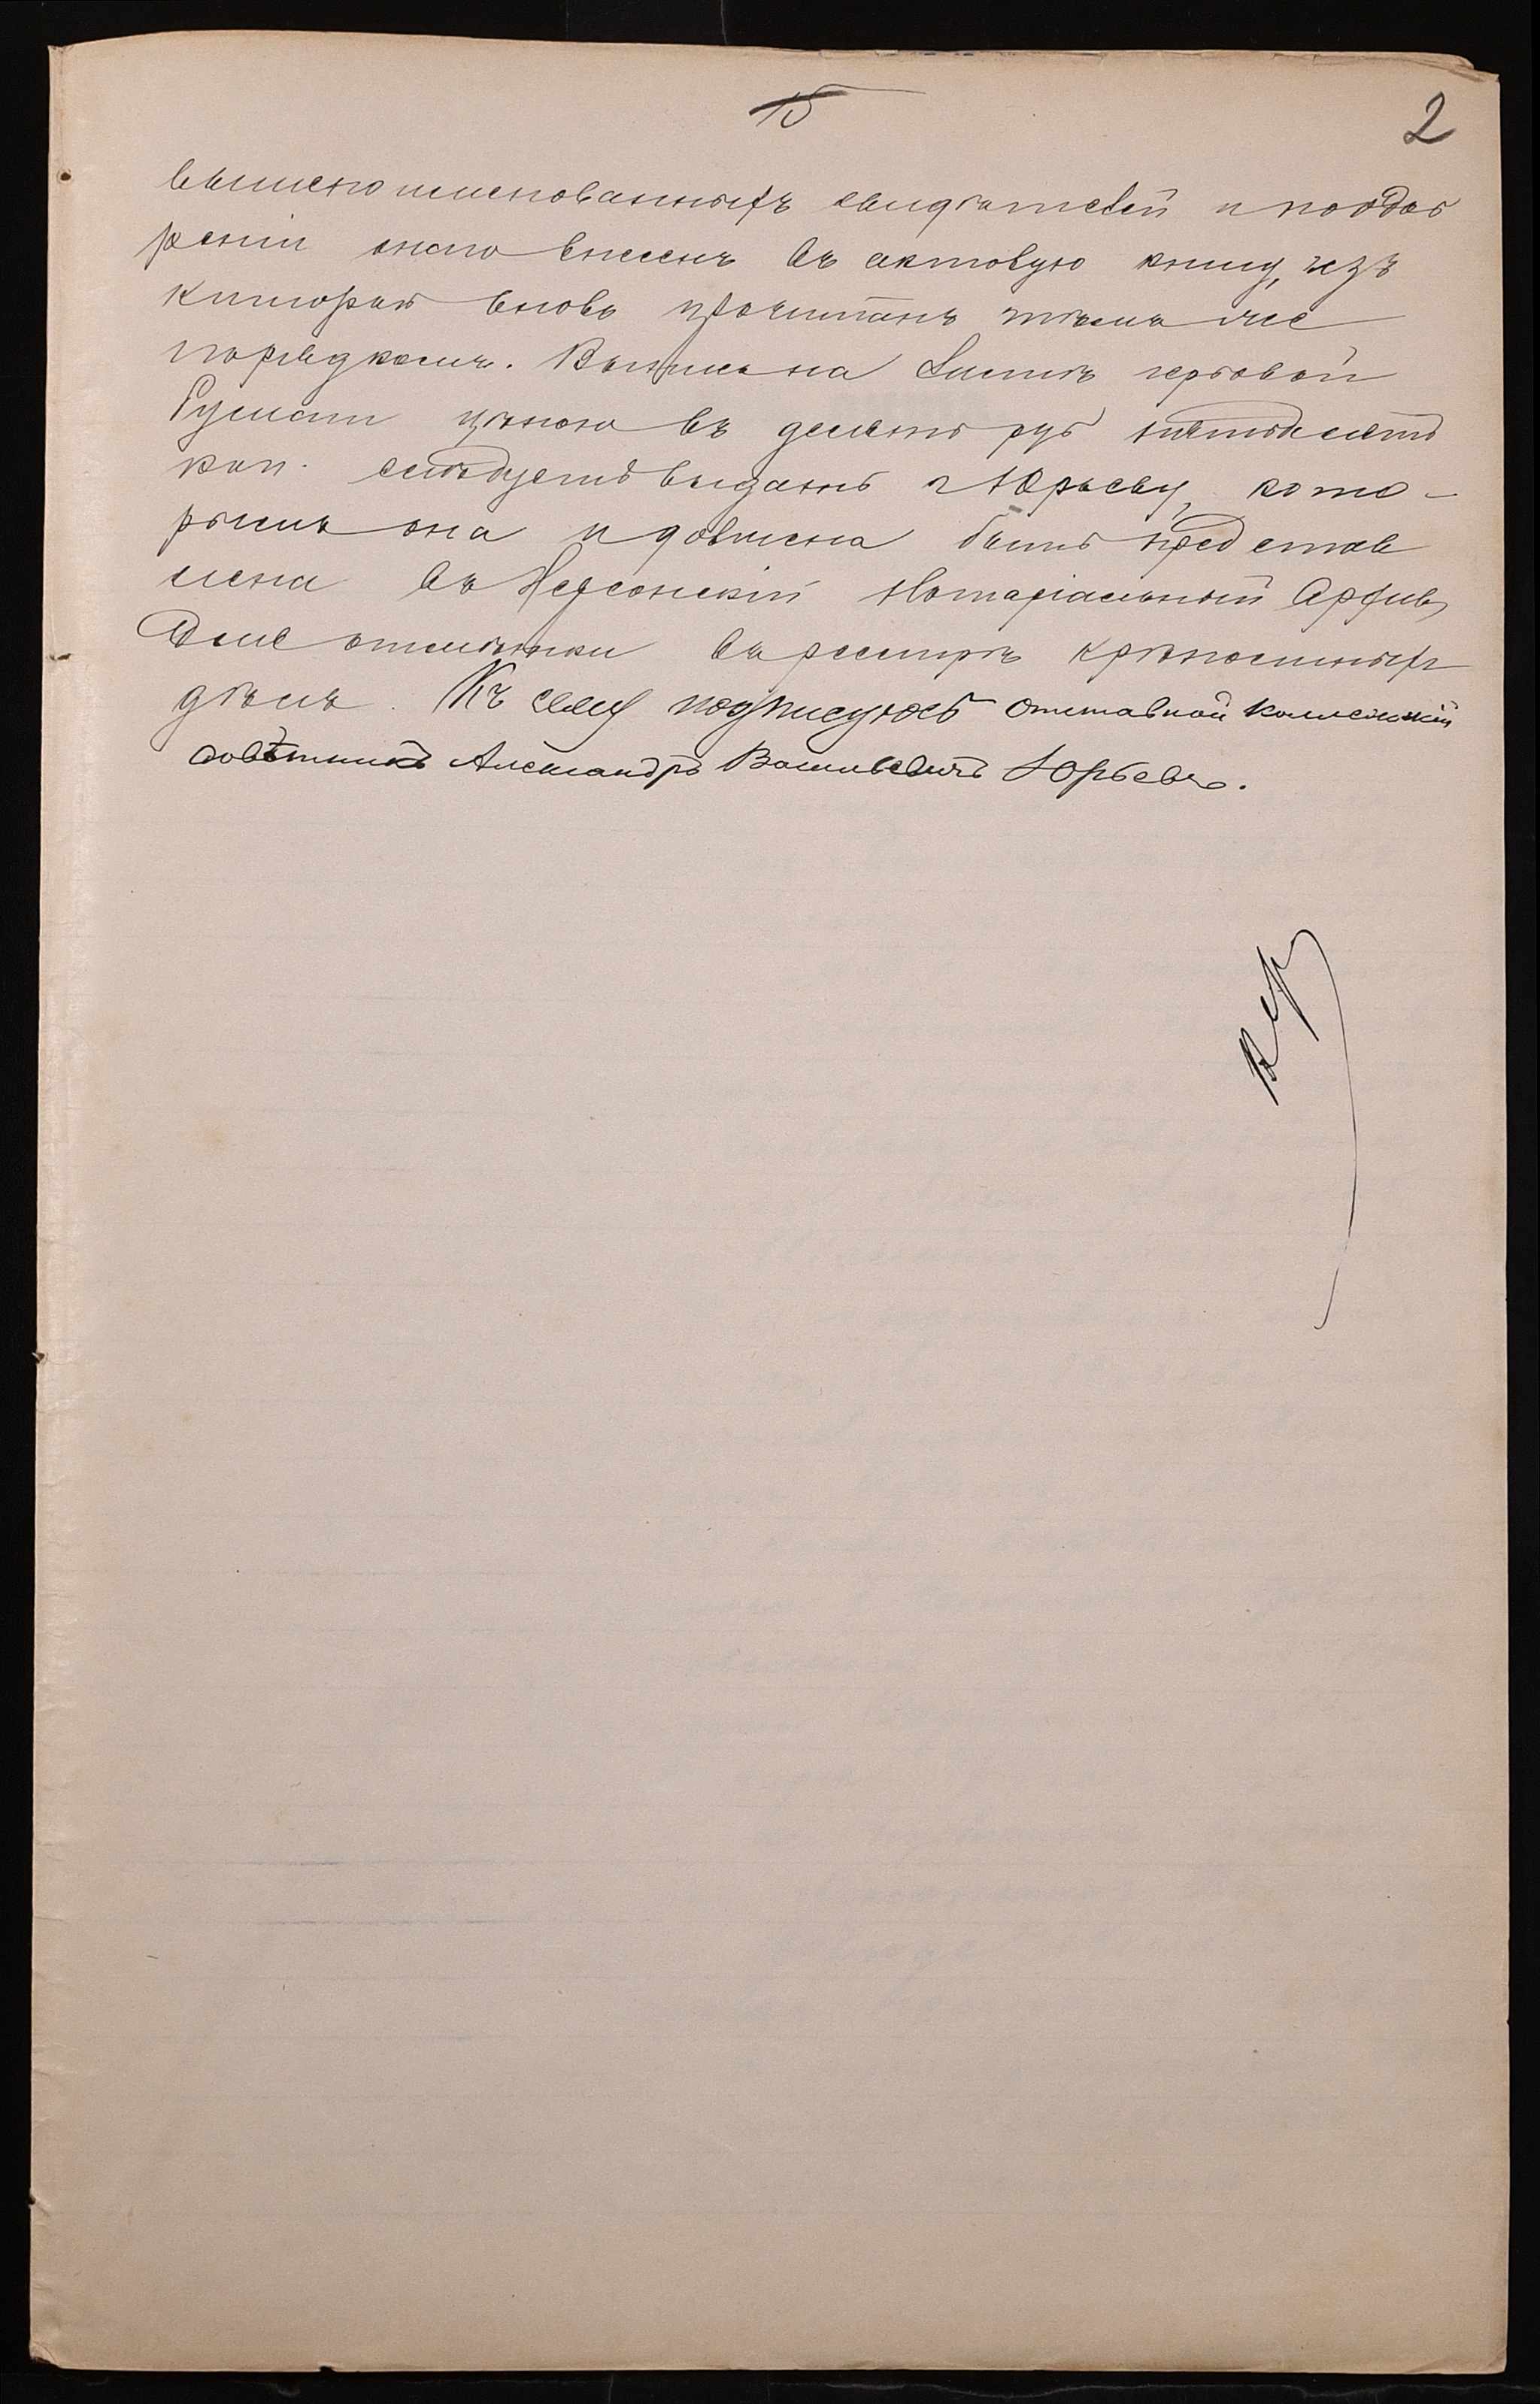 15
2
вышепоименованныхъ свидѣтелей и по одоб
реніи оного внесенъ въ актовую книгу, изъ
которой вновь прочитанъ тѣмъ же
порядкомъ. Выпись на листѣ гербовой
бумаги цѣною въ десять руб пятьдесятъ
коп. слѣдуетъ выдать г Юрьеву, кото-
рымъ она и должна быть представ
лена въ Херсонскій Нотаріальный Архивъ
для отмѣтки въ реестрѣ крѣпостныхъ
дѣлъ. Къ сему подписуюсь отставной коллежскій
совѣтникъ Александръ Васильевичъ Юрьевъ.